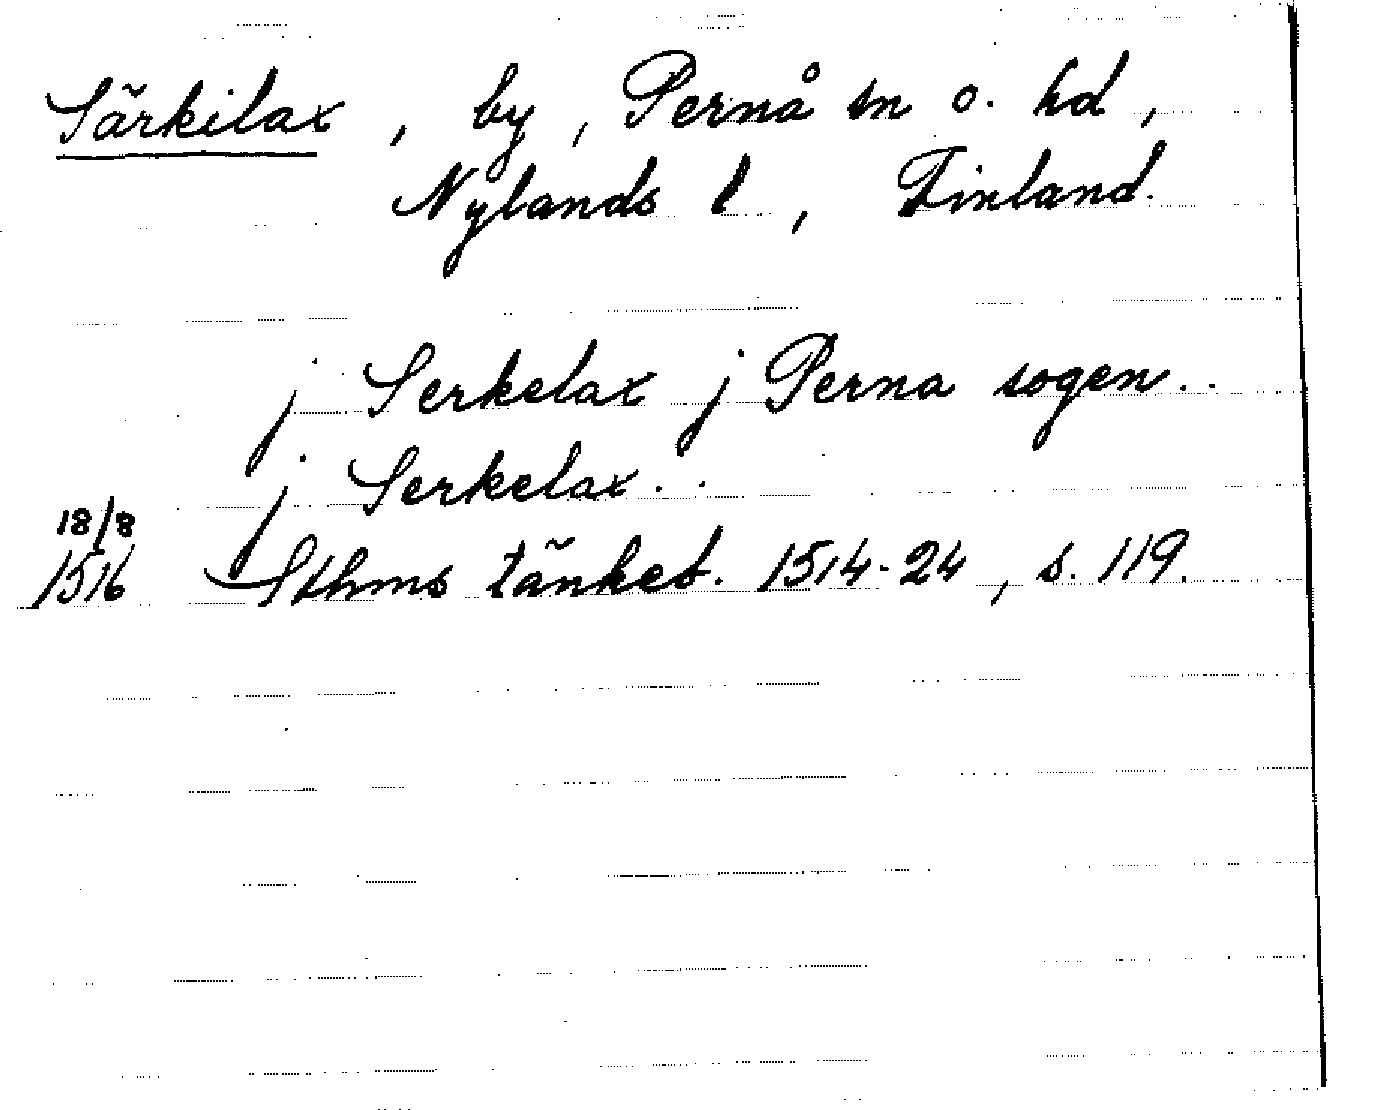 Särkilax, by, Pernå sn o. hd,
Nylands l, Finland.
j Serkelax j Perna sogen..
j Serkelax..
18/8
1516 Sthms tänkeb. 1514-24, s. 119.